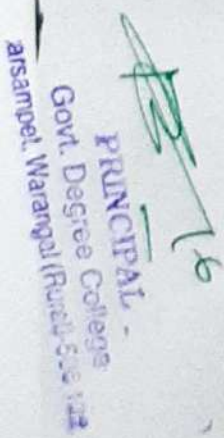 PRINCIPAL -
Govt. Degree College
arsampet, Warangal (Rural)-506 132